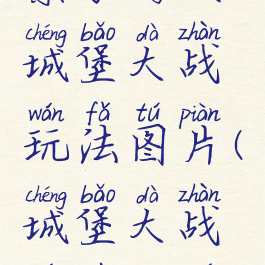 chéng bǎo dà zhàn
城堡大战
wán fǎ tú piàn
玩法图片(
chéng bǎo dà zhàn
城堡大战